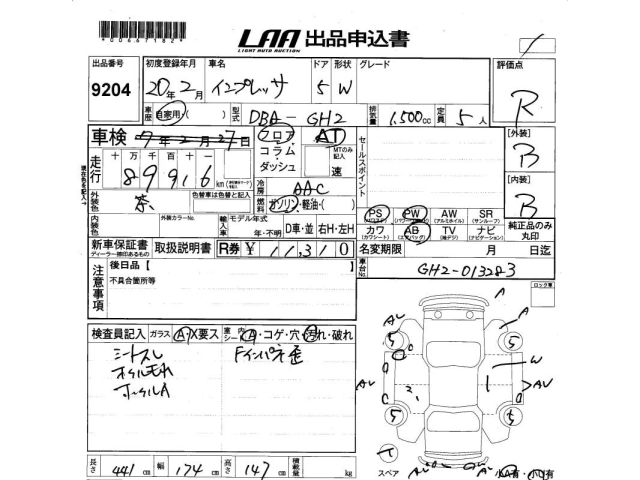 *00667182*
LAA 出品申込書
LIGHT AUTO AUCTION
出品番号 初度登録年月 車名 ドア 形状 グレード 評価点
9204 20年2月 インプレッサ 5 W R
車歴 自家用・( ) 型式 DBA-GH2 排気量 1,500cc 定員 5人
車検 7年2月27日 フロア コラム・ダッシュ AT MTのみ記入 速 セールスポイント [外装] B
走行 十万千百十 89916 km
外装色 赤 色替車は色替と記入 冷房 AAC 燃料 ガソリン・軽油・( ) [内装] B
内装色 外装カラーNo. 輸入車 モデル年式 年・不明 D車・並 右H・左H
PS PW AW SR
(パワステ) (パワーウィンドウ) (アルミホイル) (サンルーフ)
カワ AB TV ナビ 純正品のみ丸印
(カワシート) (エアバッグ) (純デジ) (ナビゲーション)
新車保証書 取扱説明書 R券 ¥ 11,310 名変期限 月 日迄
ディーラー捺印あるもの
車台No. GH2-013283
注意事項 後日品【
不具合箇所等
ロック車
検査員記入 ガラス A・X要ス 室内シミ A・コゲ・穴・汚れ・破れ
シートスレ Fインパネ歪
ホイルA
長さ 441cm 幅 174cm 高さ 147cm 積載量 kg
スペア 小A有・小U有